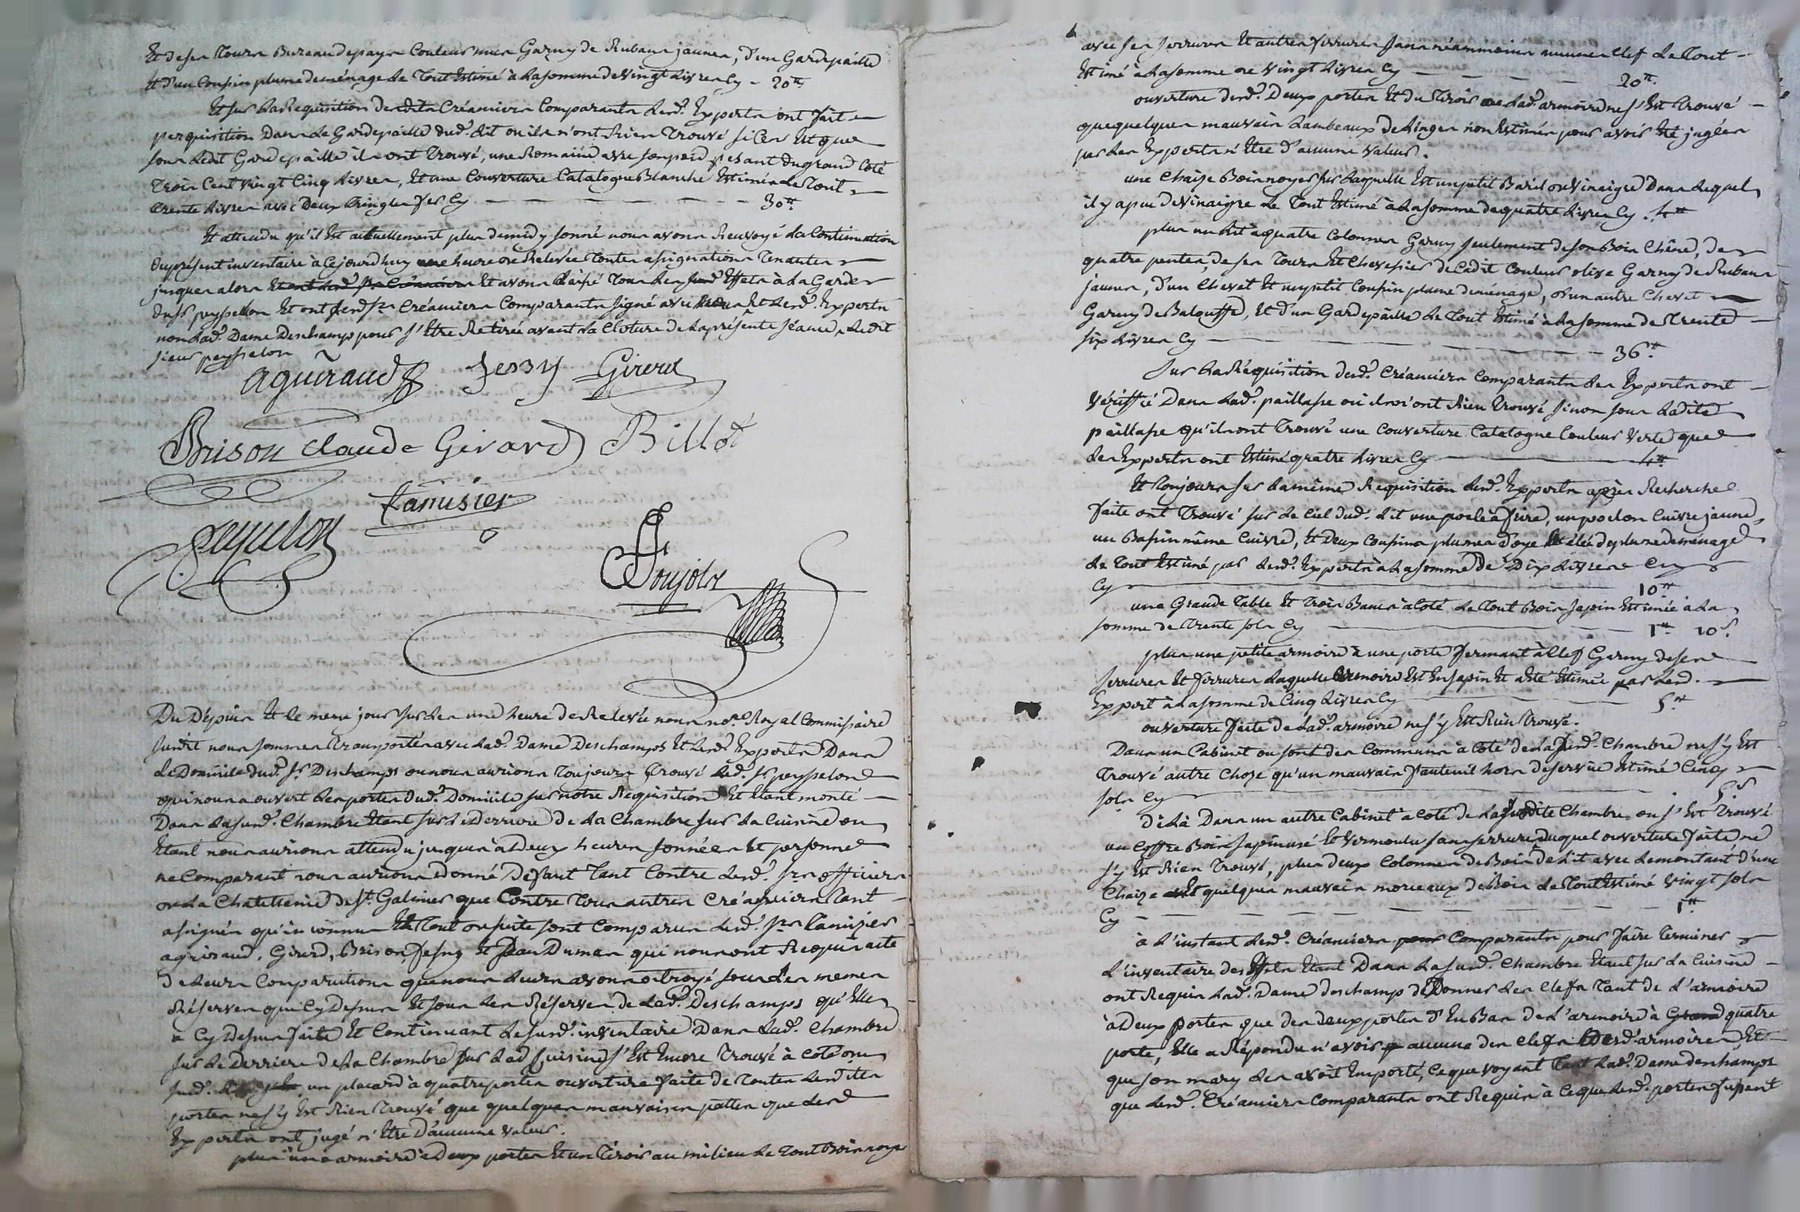 Et de ses Tours Bureau de pays Couleur mur Garny de Rubans jaunes, d'un Gardepaille
Et d'un Cousin plume de ménage Le Tout Estimé à La somme de Vingt Livres Cy - 20tt
Et sur La Requisition desdits Créanciers Comparants Lesd. Experts ont fait
perquisition Dans Le Gardepaille dud. Lit où ils n'ont Rien Trouvé si Ce n'Est que
sous Ledit Gardepaille ils ont Trouvé, une Romaine avec son poid pesant du grand Coté
Trois Cent Vingt Cinq Livres, Et une Couverture Catalogne Blanche Estimés Le Tout
Trente Livres avec Deux Tringles fer Cy - - - 30tt
Et attendu qu'il Est actuellement plus de midy sonné nous avons Renvoyé La Continuation
Du présent inventaire à Cejourdhuy une heure de Relevée Toutes assignations Tenantes
jusques alors Et avons Laissé Tous Les susd. Effets à La Garde
dud. Sr peysselon Et ont Lesd. Srs Créanciers Comparants signé avec Nous Et Lesd. Experts
non Lad. Dame Deschamps pour s'Etre Retirée avant La Cloture de La présente séance, Ledit
sieur peysselon
Aguiraud Jesny Girerd
Brison Claude Girard Billot
Lanusier
peyselon
Poujolx
Du Depuis Et le meme jour sur Les une heure de Relevée nous no.re Royal Commissaire
susdit nous sommes Transportés avec Lad. Dame Deschamps Et Lesd. Experts Dans
Le Domicile dud. Sr Deschamps ou nous aurions Toujours Trouvé Led. Sr peysselon
qui nous a ouvert Les portes dud. Domicile sur notre Requisition Et Etant monté
Dans La susd. Chambre Etant sur Le Derriere de La Chambre sur La Cuisine ou
Etant nous aurions attendu jusques à Deux heures sonnées Et personne
ne Comparant nous aurions Donné Défaut Tant Contre Lesd. Srs officiers
de La Chatellenie de St. Galmier que Contre Tous autres Créanciers Tant
assignés qu'inconnus Et Tout de suite sont Comparus Lesd. Srs Lanusier
aguiraud, Girerd, Brison, Jesny Et Jean Dumas qui nous ont Requis acte
De Leurs Comparutions que nous Leurs avons octroyé sous Les memes
Réserves que Cy Dessus Et sous Les Réserves de Lad. Deschamps qu'Elle
a Cy Dessus faite Et Continuant Le susd. inventaire Dans Lad. Chambre
sur Le Derriere de La Chambre sur Lad. Cuisine s'Est Encore Trouvé à Coté du
susd. un placard à quatre portes ouverture faite de Toutes Lesdites
portes ne s'y Est Rien Trouvé que quelques mauvaises pattes que Lesd.
Experts ont jugé n'Etre D'aucune Valeur.
plus une armoire à Deux portes Et un Tiroir au milieu Le Tout Bois noyer
avec ses serrures Et autres ferrures sans néammoins aucune Clef Le Tout
Estimé à La somme de Vingt Livres Cy - - - 20tt
ouverture desd. Deux portes Et du Tiroir de Lad. armoire ne s'Est Trouvé
que quelques mauvais Lambeaux de Linges non Estimés pour avoir Eté jugés
par Les Experts n'Etre D'aucune Valeur.
une Chaize Bois noyer sur Laquelle Est un petit Baril de Vinaigre Dans Lequel
il y a peu de Vinaigre Le Tout Estimé à La somme de quatre Livres Cy. 4tt
plus un Lit à quatre Colonnes Garny seulement de son Bois Chêne, de
quatre pentes, de ses Tours Et Chevessier de Cadit Couleur olive Garny de Rubans
jaunes, d'un Chevet Et un petit Cousin plume de ménage, d'un autre Chevet
Garny de Balouffe, Et d'un Gardepaille Le Tout Estimé à La somme de Trente
six Livres Cy - - - 36tt
Sur La Réquisition desd. Créanciers Comparants Les Experts ont
Vériffié Dans Lad. paillasse où ils n'ont Rien Trouvé sinon sous Ladite
paillasse qu'ils ont Trouvé une Couverture Catalogne Couleur Verte que
Les Experts ont Estimé quatre Livres Cy - 4tt
Et Toujours sur La même Requisition Lesd. Experts après Recherche
faite ont Trouvé sur Le Ciel dud. Lit une poele à frire, un poelon Cuivre jaune,
un Bassin même Cuivre, Et Deux Coussins plumes d'oye Et de plume de ménage
Le Tout Estimé par Lesd. Experts à La somme de Dix Livres
Cy - 10tt
une Grande Table Et Trois Bancs à Coté Le Tout Bois sapin Estimée à La
somme de Trente sols Cy - 1tt 10s
plus une petite armoire à une porte fermant à Clef Garny de ses
serrures Et ferrures Laquelle armoire Est En sapin Et a Eté Estimée par Lesd.
Expert à La somme de Cinq Livres Cy - 5tt
ouverture faite de Lad. armoire ne s'y Est Rien Trouvé.
Dans un Cabinet ou sont des Communs à Coté de La susd. Chambre ne s'y Est
Trouvé autre Chose qu'un mauvais fauteuil hors de service Estimé Cinq
sols Cy - 5s
De Là Dans un autre Cabinet à Coté de La susdite Chambre ou s'Est Trouvé
un Coffre Bois sapin usé Et Vermoulu sans serrure Duquel ouverture faite ne
s'y Est Rien Trouvé, plus deux Colonnes de Bois de Lit avec Le montant d'une
Chaize Et quelques mauvais morceaux de Bois Le Tout Estimé Vingt sols
Cy - - - 1tt
à L'instant Lesd. Créanciers Comparants pour faire Terminer
L'inventaire des Effets Etant Dans La susd. Chambre Etant sur La Cuisine
ont Requis Lad. Dame deschamps de Donner Les Clefs Tant de L'armoire
à Deux portes que des deux portes D'En Bas de L'armoire à quatre
porte, Elle a Répondu n'avoir aucune des Clefs desd. armoires, Et
que son mary Les avoit Emporté, Ce que voyant Lad. Dame deschamps
que Lesd. Créanciers Comparants ont Requis à Ce que Lesd. portes fussent